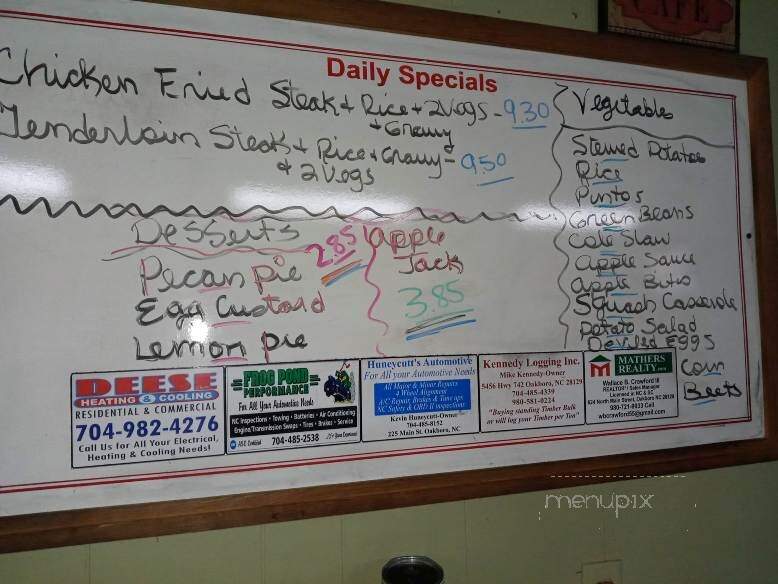 CAFE
Daily Specials
Chicken Fried Steak + Rice + 2 Vegs - 9.30
+ Gravy
Tenderloin Steak + Rice + Gravy - 9.50
+ 2 Vegs
Desserts
2.85
Pecan Pie
Egg Custard
Lemon Pie
Apple
Jack
3.85
Vegetables
Stewed Potatoes
Rice
Pintos
Green Beans
Cole Slaw
Apple Sauce
Apple Bites
Squash Casserole
Potato Salad
Deviled Eggs
Corn
Beets
DEESE
HEATING & COOLING
RESIDENTIAL & COMMERCIAL
704-982-4276
Call Us for All Your Electrical,
Heating & Cooling Needs!
FROG POND
PERFORMANCE
For All Your Automotive Needs
NC Inspections • Towing • Batteries • Air Conditioning
Engine/Transmission Swaps • Tires • Brakes • Service
ASE Certified
704-485-2538
Huneycutt's Automotive
For All your Automotive Needs
All Major & Minor Repairs
4 Wheel Alignment
A/C Repair, Brakes & Tune ups
NC Safety & OBD II inspections
Kevin Huneycutt-Owner
704-485-8152
225 Main St. Oakboro, NC
Kennedy Logging Inc.
Mike Kennedy-Owner
5456 Hwy 742 Oakboro, NC 28129
704-485-4339
980-581-0224
"Buying standing Timber Bulk
or will log your Timber per Ton"
MATHERS
REALTY.com
Wallace B. Crawford III
REALTOR® / Sales Manager
Licensed in NC & SC
624 North Main Street, Oakboro, NC 28129
980-721-9933 Cell
wbcrawford65@gmail.com
menupix